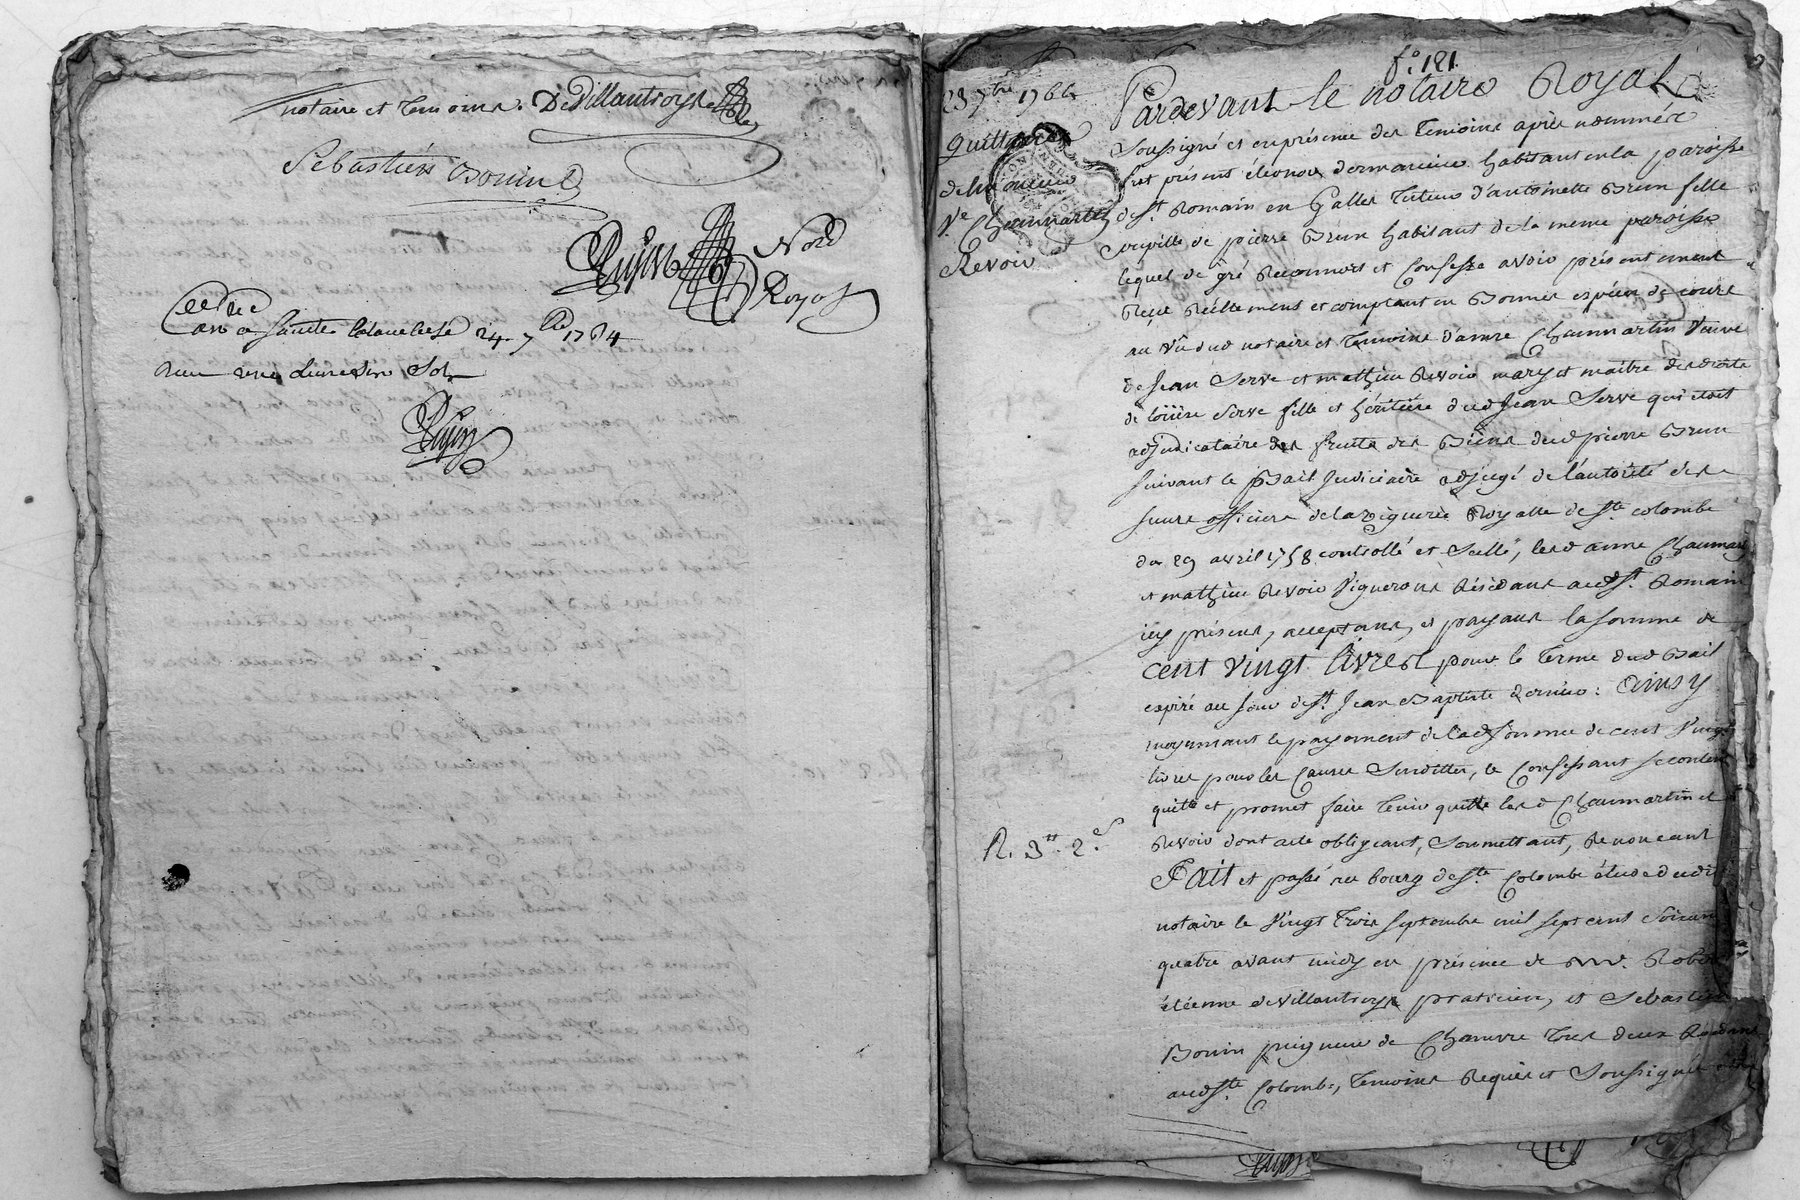 notaire et temoins. DeVillantroys
Sebastien Bonin
Dujon Not
Royal
Ste Colombe le 24 7bre 1764
Dujon
f.o 181.
23 7bre 1764
quittance
Ve Chaumartin
Revoir
Pardevant le notaire Royal
Soussigné et en présence des temoins après nommés
fut présent éléonor dormancieu habitant en la paroisse
de St. Romain en Galles tuteur d'antoinette Brun fille
pupille de pierre Brun habitant de la meme paroisse
lequel de gré Reconnoit et Confesse avoir présentement
Reçu Réellement et comptant en Bonnes espéces de cours
au vû dud notaire et temoins d'anne Chaumartin Veuve
de Jean Serve et mathieu Revoir mary et maitre des droits
de loüise Serve fille et héritière dud Jean Serve qui étoit
adjudicataire des fruits des Biens dud pierre Brun
suivant le Bail Judiciaire adjugé de l'autorité des
sieurs officiers de la viguerie Royalle de Ste colombe
du 29 avril 1758 controllé et Scellé, lesd anne Chaumartin
et mathieu Revoir Vignerons Résidans aud St. Romain
icy présens, acceptans, et payans la somme de
cent vingt livres pour le terme dud Bail
expiré au jour de St. Jean Baptiste dernier: Ainsy
moyennant le payement de lad somme de cent Vingt
livres pour les Causes Susdittes, le Confessant se content
quitte et promet faire tenir quitte lesd Chaumartin et
Revoir dont acte obligeant, Soumettant, Renonceant
R. 3tt. 2s
Fait et passé au bourg de Ste. Colombe étude dudit
notaire le Vingt Trois septembre mil sept cent Soixante
quatre avant midy en présence de Mr. Robert
étienne deVillantroys praticien, et Sebastien
Bonin peigneur de Chanvre tous deux Résidans
aud Ste Colombe, temoins Requis et Soussignés